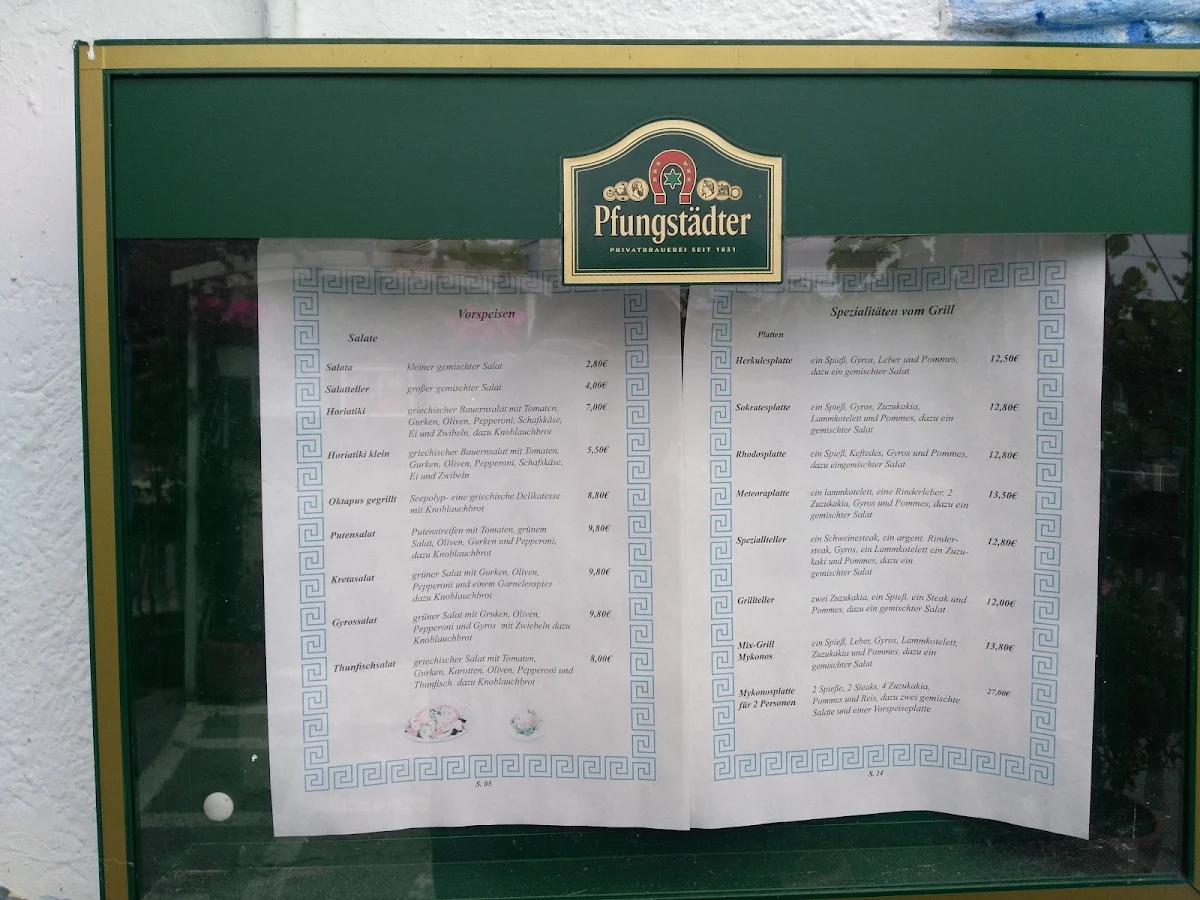 Pfungstädter
PRIVATBRAUEREI SEIT 1831
Vorspeisen
Salate
Salata kleiner gemischter Salat 2,80€
Salatteller großer gemischter Salat 4,00€
Horiatiki griechischer Bauernsalat mit Tomaten, 7,00€
Gurken, Oliven, Pepperoni, Schafskäse,
Ei und Zwibeln, dazu Knoblauchbrot
Horiatiki klein griechischer Bauernsalat mit Tomaten, 5,50€
Gurken, Oliven, Pepperoni, Schafskäse,
Ei und Zwibeln
Oktapus gegrillt Seepolyp- eine griechische Delikatesse 8,80€
mit Knoblauchbrot
Putensalat Putenstreifen mit Tomaten, grünem 9,80€
Salat, Oliven, Gurken und Pepperoni,
dazu Knoblauchbrot
Kretasalat grüner Salat mit Gurken, Oliven, 9,80€
Pepperoni und einem Garnelenspies
dazu Knoblauchbrot
Gyrossalat grüner Salat mit Gruken, Oliven, 9,80€
Pepperoni und Gyros mit Zwiebeln dazu
Knoblauchbrot
Thunfischsalat griechischer Salat mit Tomaten, 8,00€
Gurken, Karotten, Oliven, Pepperoni und
Thunfisch dazu Knoblauchbrot
S. 05
Spezialitäten vom Grill
Platten
Herkulesplatte ein Spieß, Gyros, Leber und Pommes, 12,50€
dazu ein gemischter Salat
Sokratesplatte ein Spieß, Gyros, Zuzukakia, 12,80€
Lammkotelett und Pommes, dazu ein
gemischter Salat
Rhodosplatte ein Spieß, Keftedes, Gyros und Pommes, 12,80€
dazu eingemischter Salat
Meteoraplatte ein lammkotelett, eine Rinderleber, 2 13,50€
Zuzukakia, Gyros und Pommes, dazu ein
gemischter Salat
Speziallteller ein Schweinesteak, ein argent. Rinder- 12,80€
steak, Gyros, ein Lammkotelett ein Zuzu-
kaki und Pommes, dazu ein
gemischter Salat
Grillteller zwei Zuzukakia, ein Spieß, ein Steak und 12,00€
Pommes, dazu ein gemischter Salat
Mix-Grill ein Spieß, Leber, Gyros, Lammkotelett, 13,80€
Mykonos Zuzukakia und Pommes, dazu ein
gemischter Salat
Mykonosplatte 2 Spieße, 2 Steaks, 4 Zuzukakia, 27,00€
für 2 Personen Pommes und Reis, dazu zwei gemischte
Salate und einer Vorspeiseplatte
S. 14